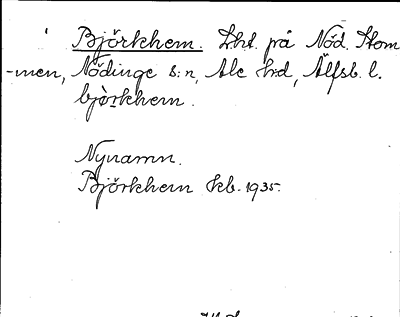 Björkhem. Lht. på Nöd. Stom
-men, Nödinge s:n, Ale h:d, Älfsb. l.
bjö̀rkhem.
Nynamn.
Björkhem kb. 1935.